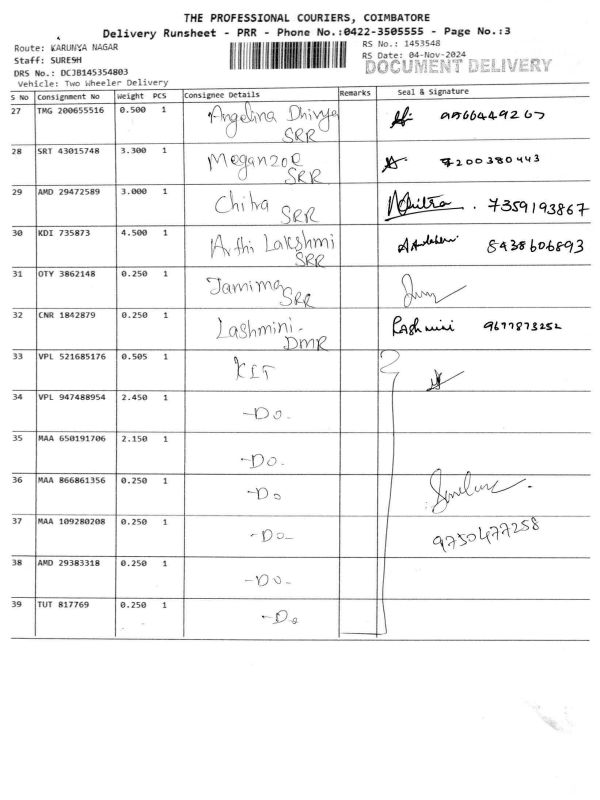 THE PROFESSIONAL COURIERS, COIMBATORE
Delivery Runsheet - PRR - Phone No.:0422-3505555 - Page No.:3
Route: KARUNYA NAGAR
RS No.: 1453548
Staff: SURESH
RS Date: 04-Nov-2024
DRS No.: DCJB145354803
DOCUMENT DELIVERY
Vehicle: Two Wheeler Delivery
S No Consignment No Weight PCS Consignee Details Remarks Seal & Signature
27 TMG 200655516 0.500 1 Angelina Dhivya
SRR
28 SRT 43015748 3.300 1 Meganzoe 7200380443
SRR
29 AMD 29472589 3.000 1 Chitra NChitra. 7359193867
SRR
30 KDI 735873 4.500 1 Arthi Lakshmi 8438606893
SRR
31 OTY 3862148 0.250 1 Jamima
SRR
32 CNR 1842879 0.250 1 Lashmini- Rashmini 9677873252
DMR
33 VPL 521685176 0.505 1 KIT
34 VPL 947488954 2.450 1 -Do-
35 MAA 650191706 2.150 1 -Do-
36 MAA 866861356 0.250 1 -Do
37 MAA 109280208 0.250 1 -Do- 9750477258
38 AMD 29383318 0.250 1 -Do-
39 TUT 817769 0.250 1 -Do